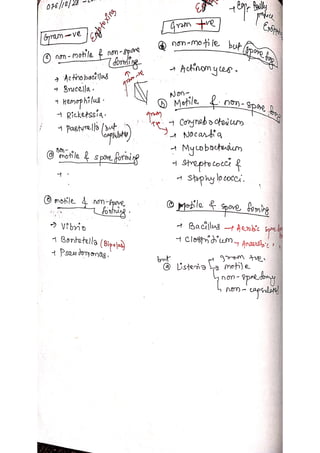 Gram -ve
Endotoxins
non-motile & non-spore forming
→ Actinobacillus
→ Brucella.
→ Hemophilus.
→ Rickettsia.
→ Pasturella (but capsulated)
non-motile & spore forming
motile & non-spore forming.
→ Vibrio
→ Bortetella (Bipolar)
→ Pseudomonas.
Gram +ve
non-motile but spore
→ Actinomyces.
Non-
Motile & non-spore forming
gram +ve
→ Corynebacterium
→ Nocardia
→ Mycobacterium
→ Streptococci &
→ Staphylococci.
motile & spore forming
→ Bacillus → Aerobic spore
→ Clostridium → Anaerobic
but gram +ve.
Listeria → motile
non-spore forming
non-capsulated